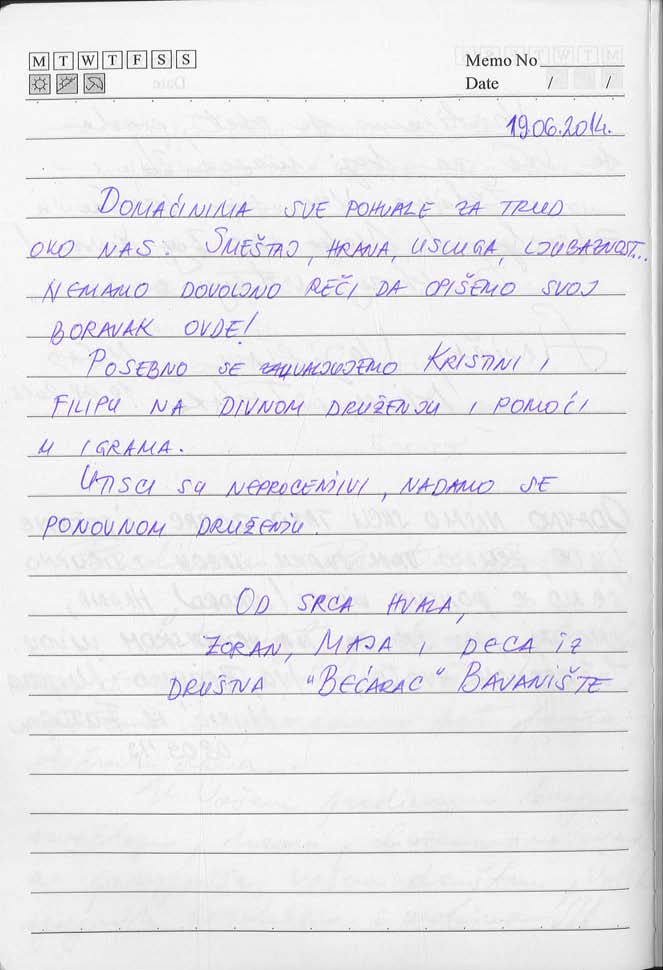 M T W T F S S
Memo No
Date / /
19.06.2014.
DOMAĆINIMA SVE POHVALE ZA TRUD
OKO NAS. SMEŠTAJ, HRANA, USLUGA, LJUBAZNOST...
NEMAMO DOVOLJNO REČI DA OPIŠEMO SVOJ
BORAVAK OVDE!
POSEBNO SE ZAHVALJUJEMO KRISTINI I
FILIPU NA DIVNOM DRUŽENJU I POMOĆI
U IGRAMA.
UTISCI SU NEPROCENJIVI, NADAMO SE
PONOVNOM DRUŽENJU.
OD SRCA HVALA,
ZORAN, MAJA I DECA IZ
DRUŠTVA "BEĆARAC" BAVANIŠTE